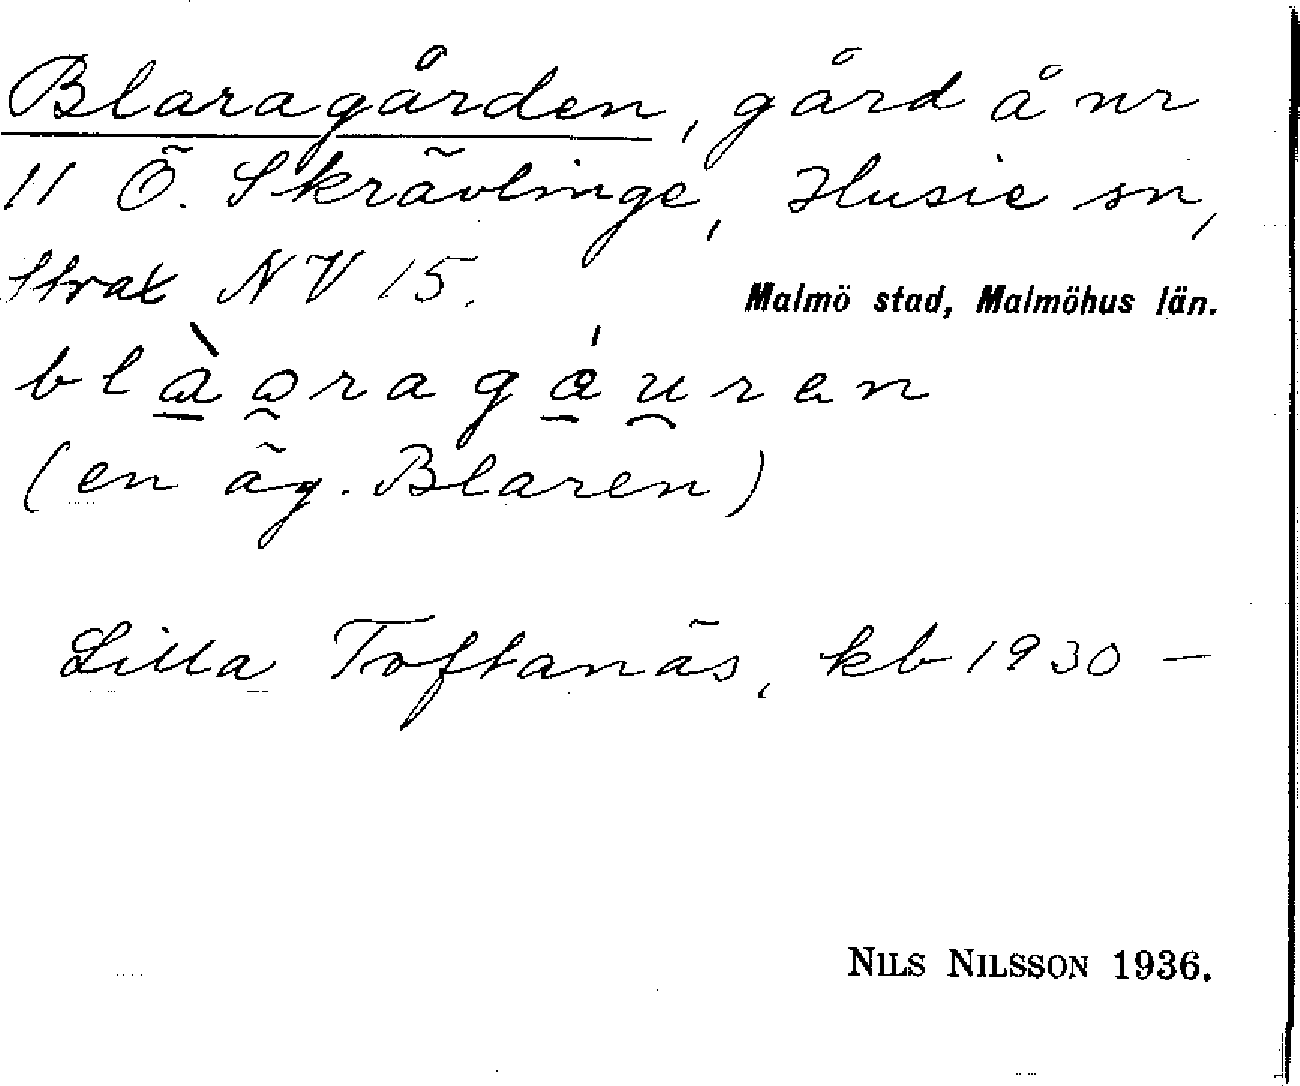 Blaragården, gård å nr
11 Ö. Skrävlinge, Husie sn,
Strax NV 15.
Malmö stad, Malmöhus län.
blàɑragáuren
(en äg. Blaren)
Lilla Toftanäs, kb 1930 –
NILS NILSSON 1936.